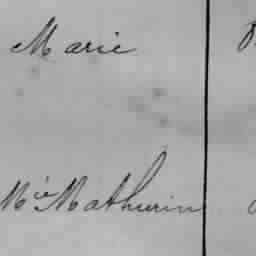 Marie
Mie Mathurin